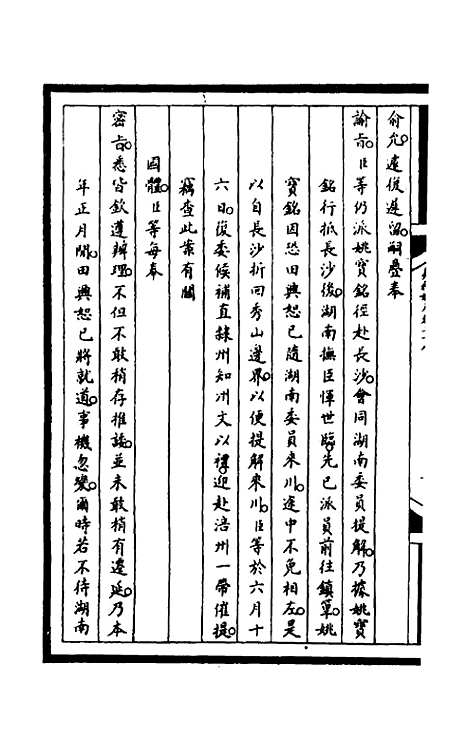 俞允遠後遲留嗣疊奉
諭旨臣等仍派姚寶銘徑赴長沙會同湖南委員提解乃據姚寶
銘行抵長沙後湖南撫臣惲世臨先已派員前往鎮筸姚
寶銘因恐田興恕已隨湖南委員來川途中不免相左是
以自長沙折回秀山邊界以便提解來川臣等於六月十
六日復委候補直隸州知州文以禮迎赴涪州一帶催提
竊查此案有關
國體臣等每奉
密旨悉皆欽遵辦理不但不敢稍存推諉並未敢稍有遷延乃本
年正月間田興恕已將就道事機忽變爾時若不待湖南